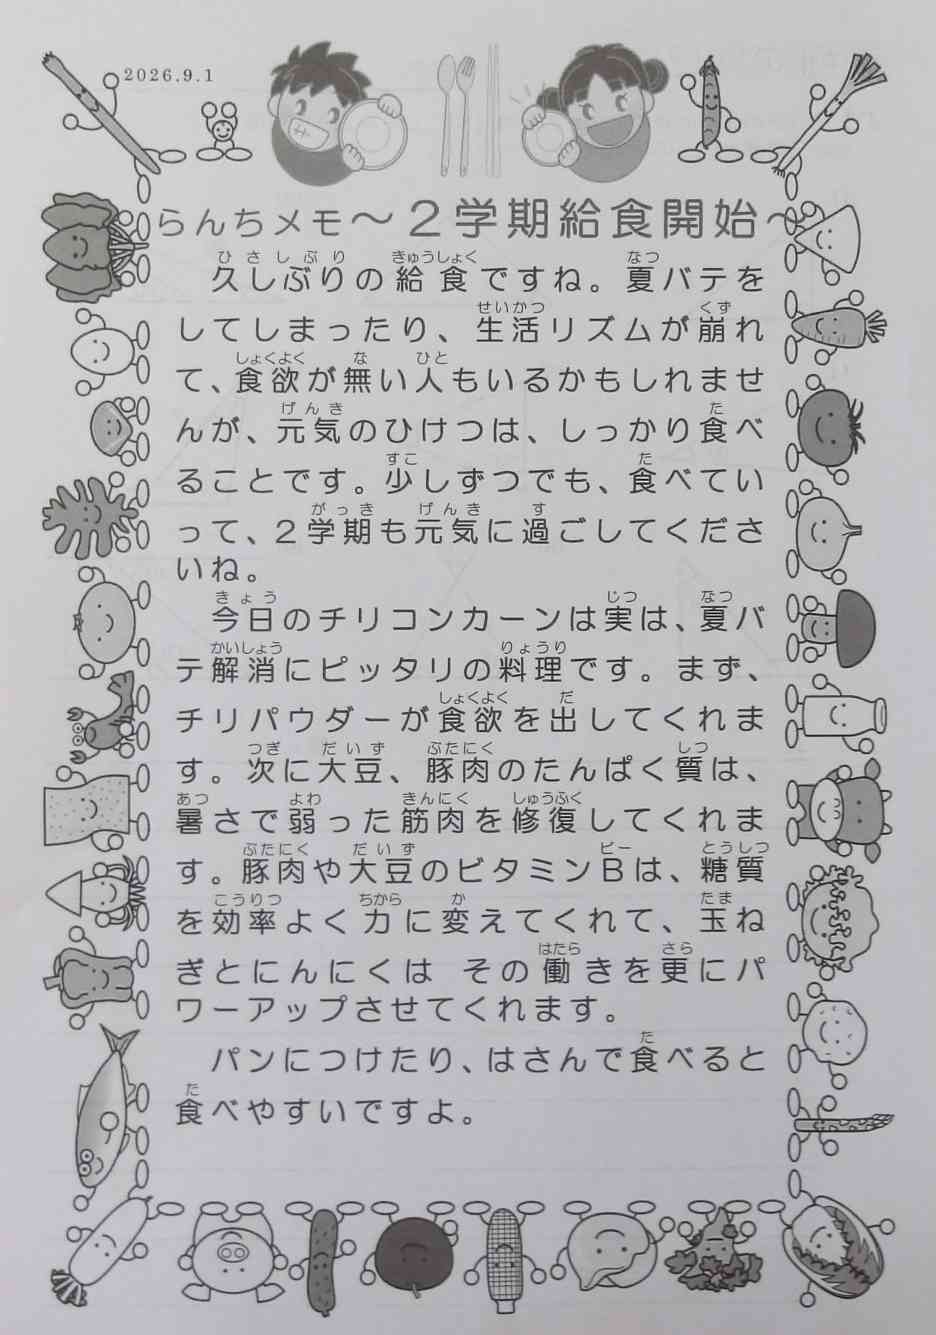 2026.9.1
らんちメモ～２学期給食開始～
久しぶりの給食ですね。夏バテを
してしまったり、生活リズムが崩れ
て、食欲が無い人もいるかもしれませ
んが、元気のひけつは、しっかり食べ
ることです。少しずつでも、食べてい
って、２学期も元気に過ごしてくださ
いね。
今日のチリコンカーンは実は、夏バ
テ解消にピッタリの料理です。まず、
チリパウダーが食欲を出してくれま
す。次に大豆、豚肉のたんぱく質は、
暑さで弱った筋肉を修復してくれま
す。豚肉や大豆のビタミンＢは、糖質
を効率よく力に変えてくれて、玉ね
ぎとにんにくは その働きを更にパ
ワーアップさせてくれます。
パンにつけたり、はさんで食べると
食べやすいですよ。